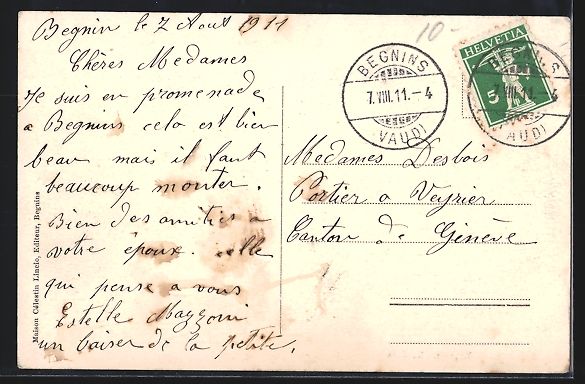 Begnin le 7 Aout 1911
Chères Medames
Je suis en promenade
a Begnins cela est bien
beau mais il faut
beaucoup monter.
Bien des amitiés a
votre époux. celle
qui pense a vous
Estelle Mazzoni
un baiser de la petite.
Maison Célestin Linclo, Editeur, Begnins
10-
BEGNINS
7.VIII.11.-4
(VAUD)
HELVETIA
5
BEGNINS
7.VIII.11.-4
(VAUD)
Medames Desbois
Portier a Veyrier
Canton de Genève